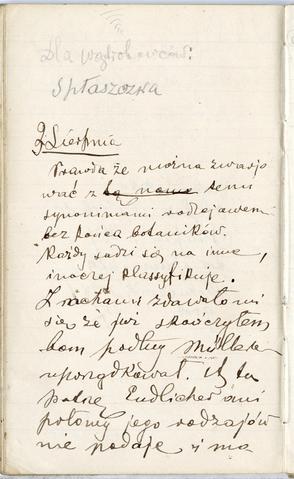 Dla wątrobowców:
Spłaszczka
2 Sierpnia
Prawda że można zwarjo
wać z tą nową temi
synonimami rodzajowemi
bez końca botaników.
Każdy sadzi się na inne,
inaczej klassyfikuje.
Z rachanus zdawało mi
się że już skończyłem
bom podług Müllera
uporządkował. A tu
patrzę Endlicher ani
połowy jego rodzajów
nie podaje i ma